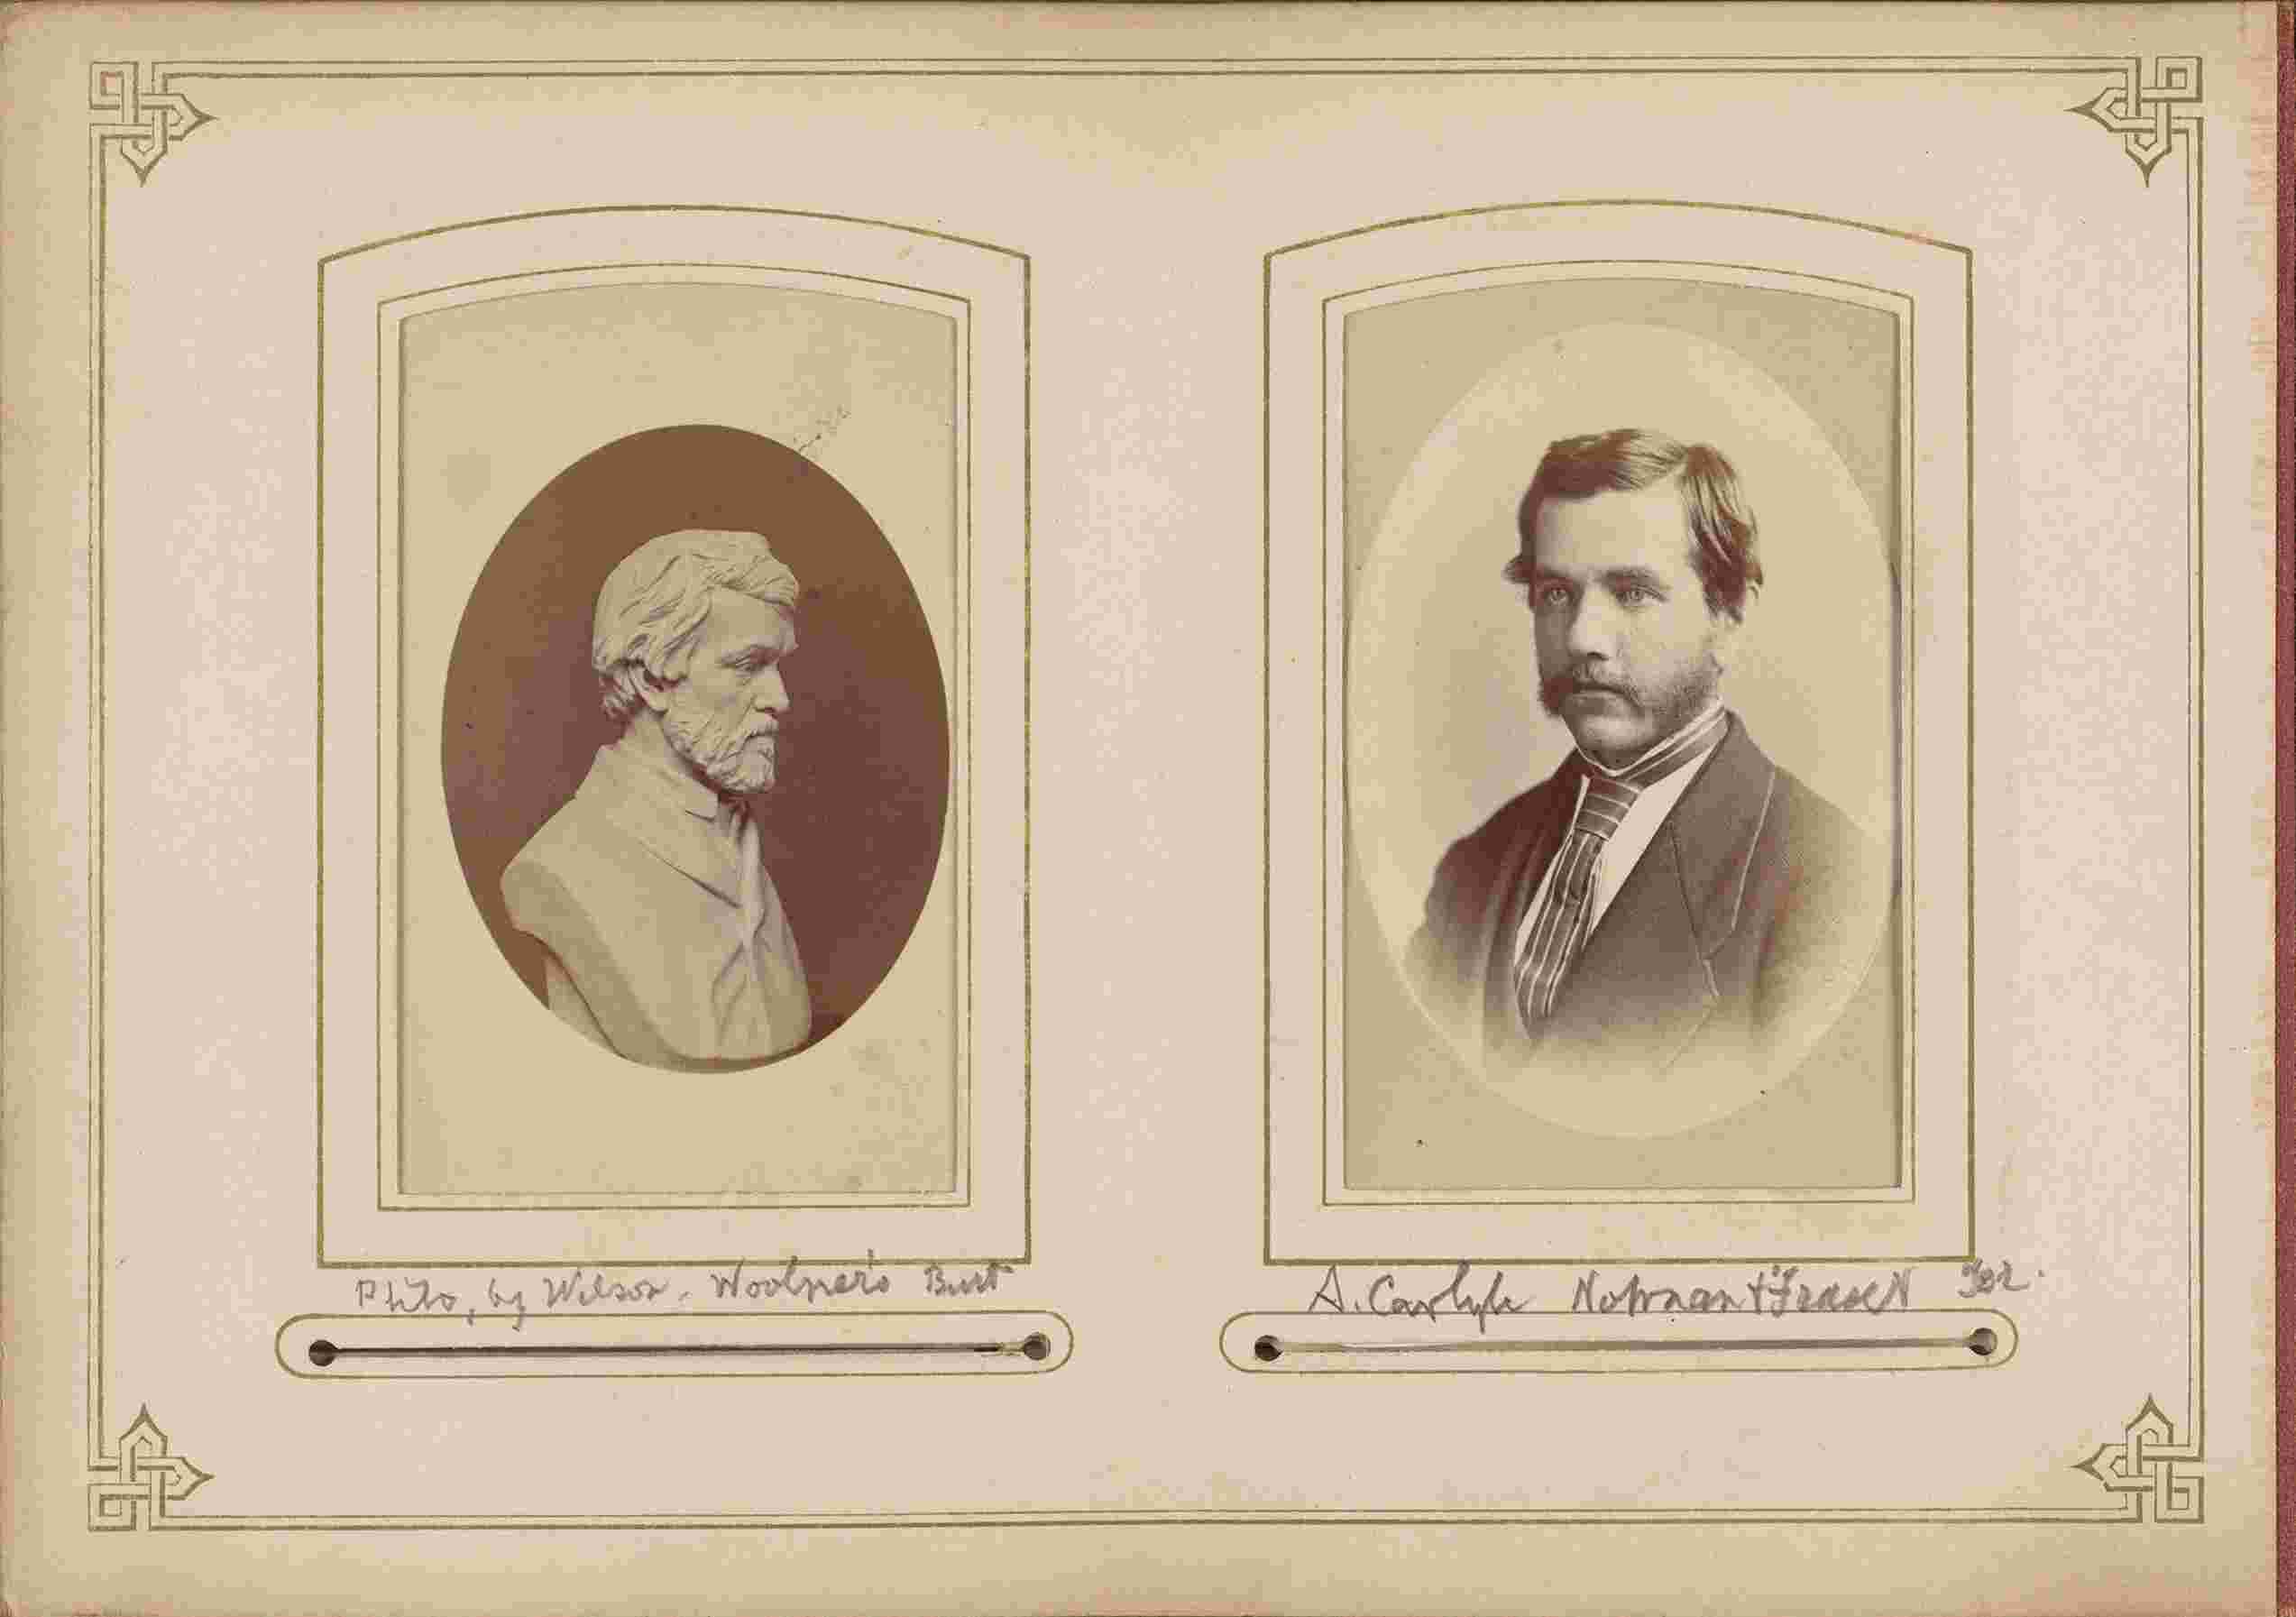 Photo, by Wilson. Woolner's Bust
A. Carlyle Notman & Fraser Tor.